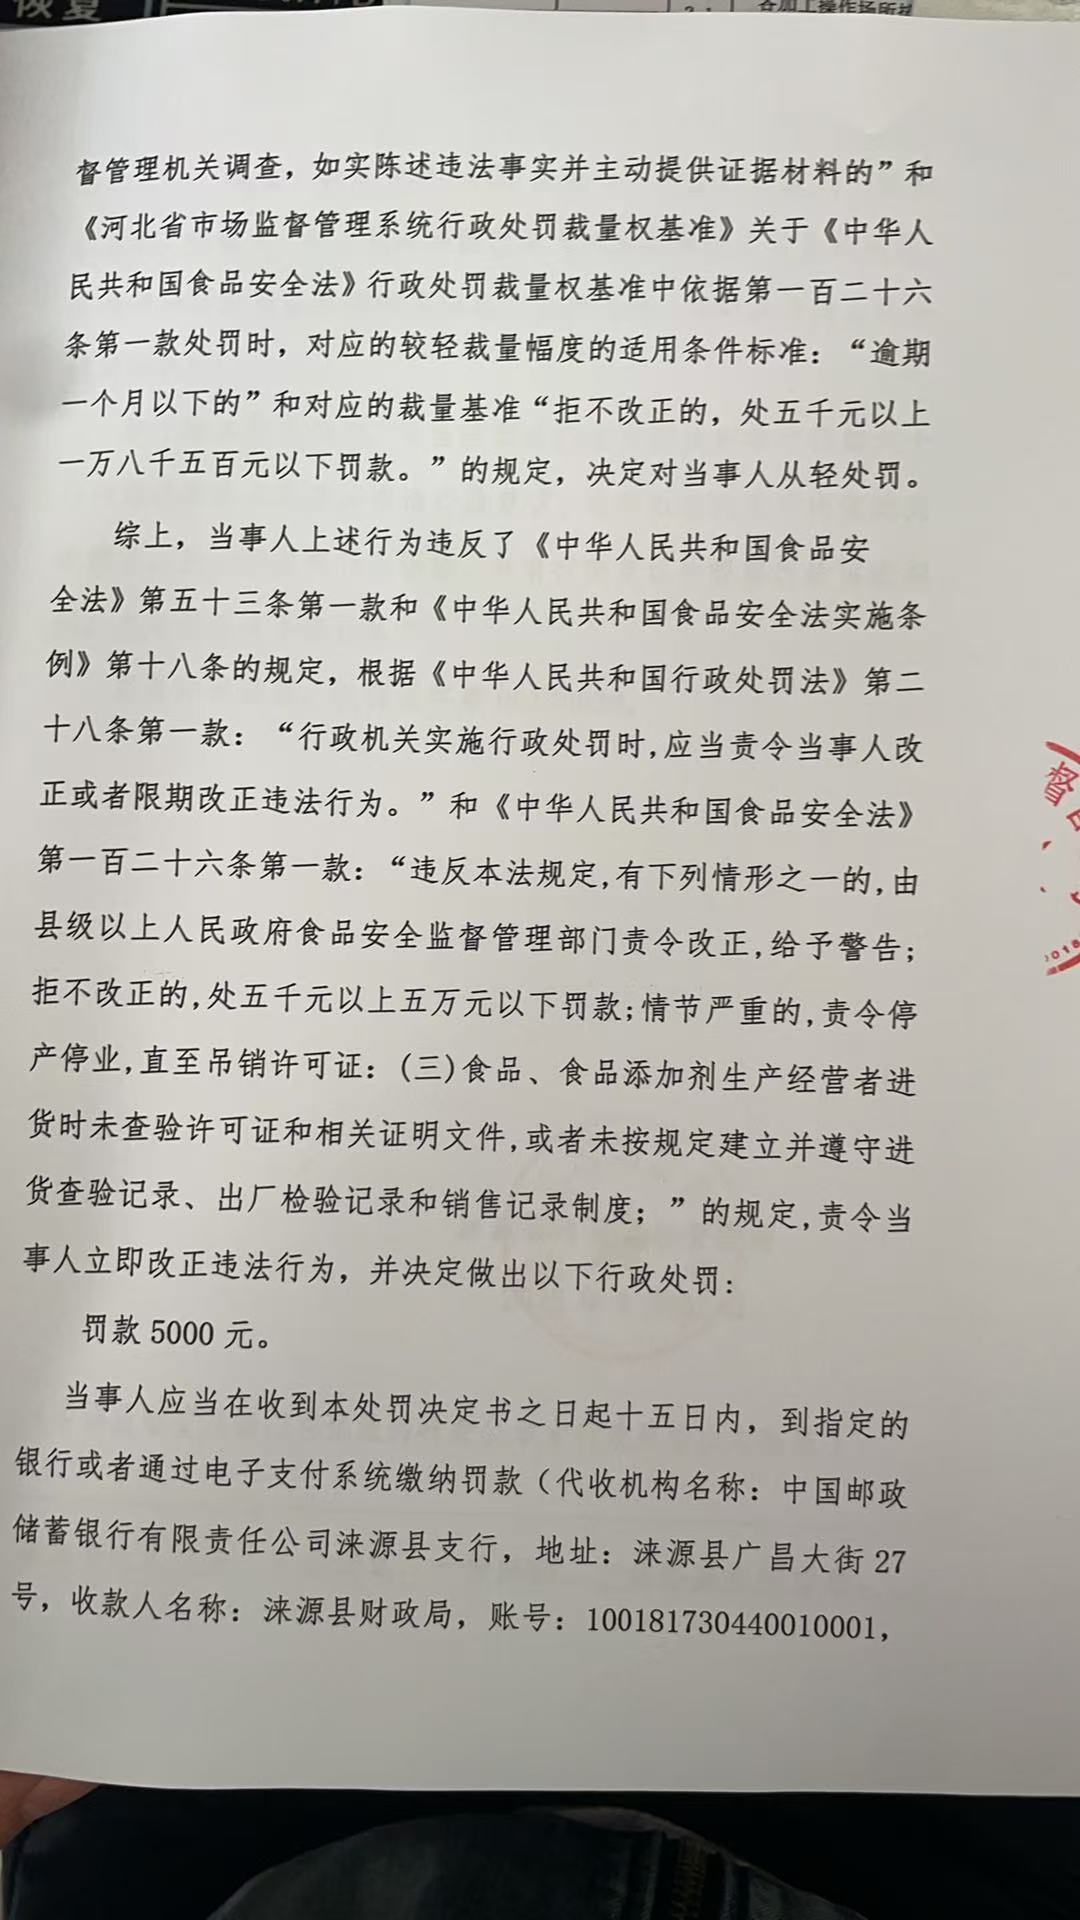 恢复
各加工操作场所
督管理机关调查，如实陈述违法事实并主动提供证据材料的”和
《河北省市场监督管理系统行政处罚裁量权基准》关于《中华人
民共和国食品安全法》行政处罚裁量权基准中依据第一百二十六
条第一款处罚时，对应的较轻裁量幅度的适用条件标准：“逾期
一个月以下的”和对应的裁量基准“拒不改正的，处五千元以上
一万八千五百元以下罚款。”的规定，决定对当事人从轻处罚。
综上，当事人上述行为违反了《中华人民共和国食品安
全法》第五十三条第一款和《中华人民共和国食品安全法实施条
例》第十八条的规定，根据《中华人民共和国行政处罚法》第二
十八条第一款：“行政机关实施行政处罚时,应当责令当事人改
正或者限期改正违法行为。”和《中华人民共和国食品安全法》
第一百二十六条第一款：“违反本法规定,有下列情形之一的,由
县级以上人民政府食品安全监督管理部门责令改正,给予警告；
拒不改正的,处五千元以上五万元以下罚款;情节严重的,责令停
产停业,直至吊销许可证：(三)食品、食品添加剂生产经营者进
货时未查验许可证和相关证明文件,或者未按规定建立并遵守进
货查验记录、出厂检验记录和销售记录制度；”的规定,责令当
事人立即改正违法行为，并决定做出以下行政处罚：
罚款 5000 元。
当事人应当在收到本处罚决定书之日起十五日内，到指定的
银行或者通过电子支付系统缴纳罚款（代收机构名称：中国邮政
储蓄银行有限责任公司涞源县支行，地址：涞源县广昌大街 27
号，收款人名称：涞源县财政局，账号：100181730440010001，
督